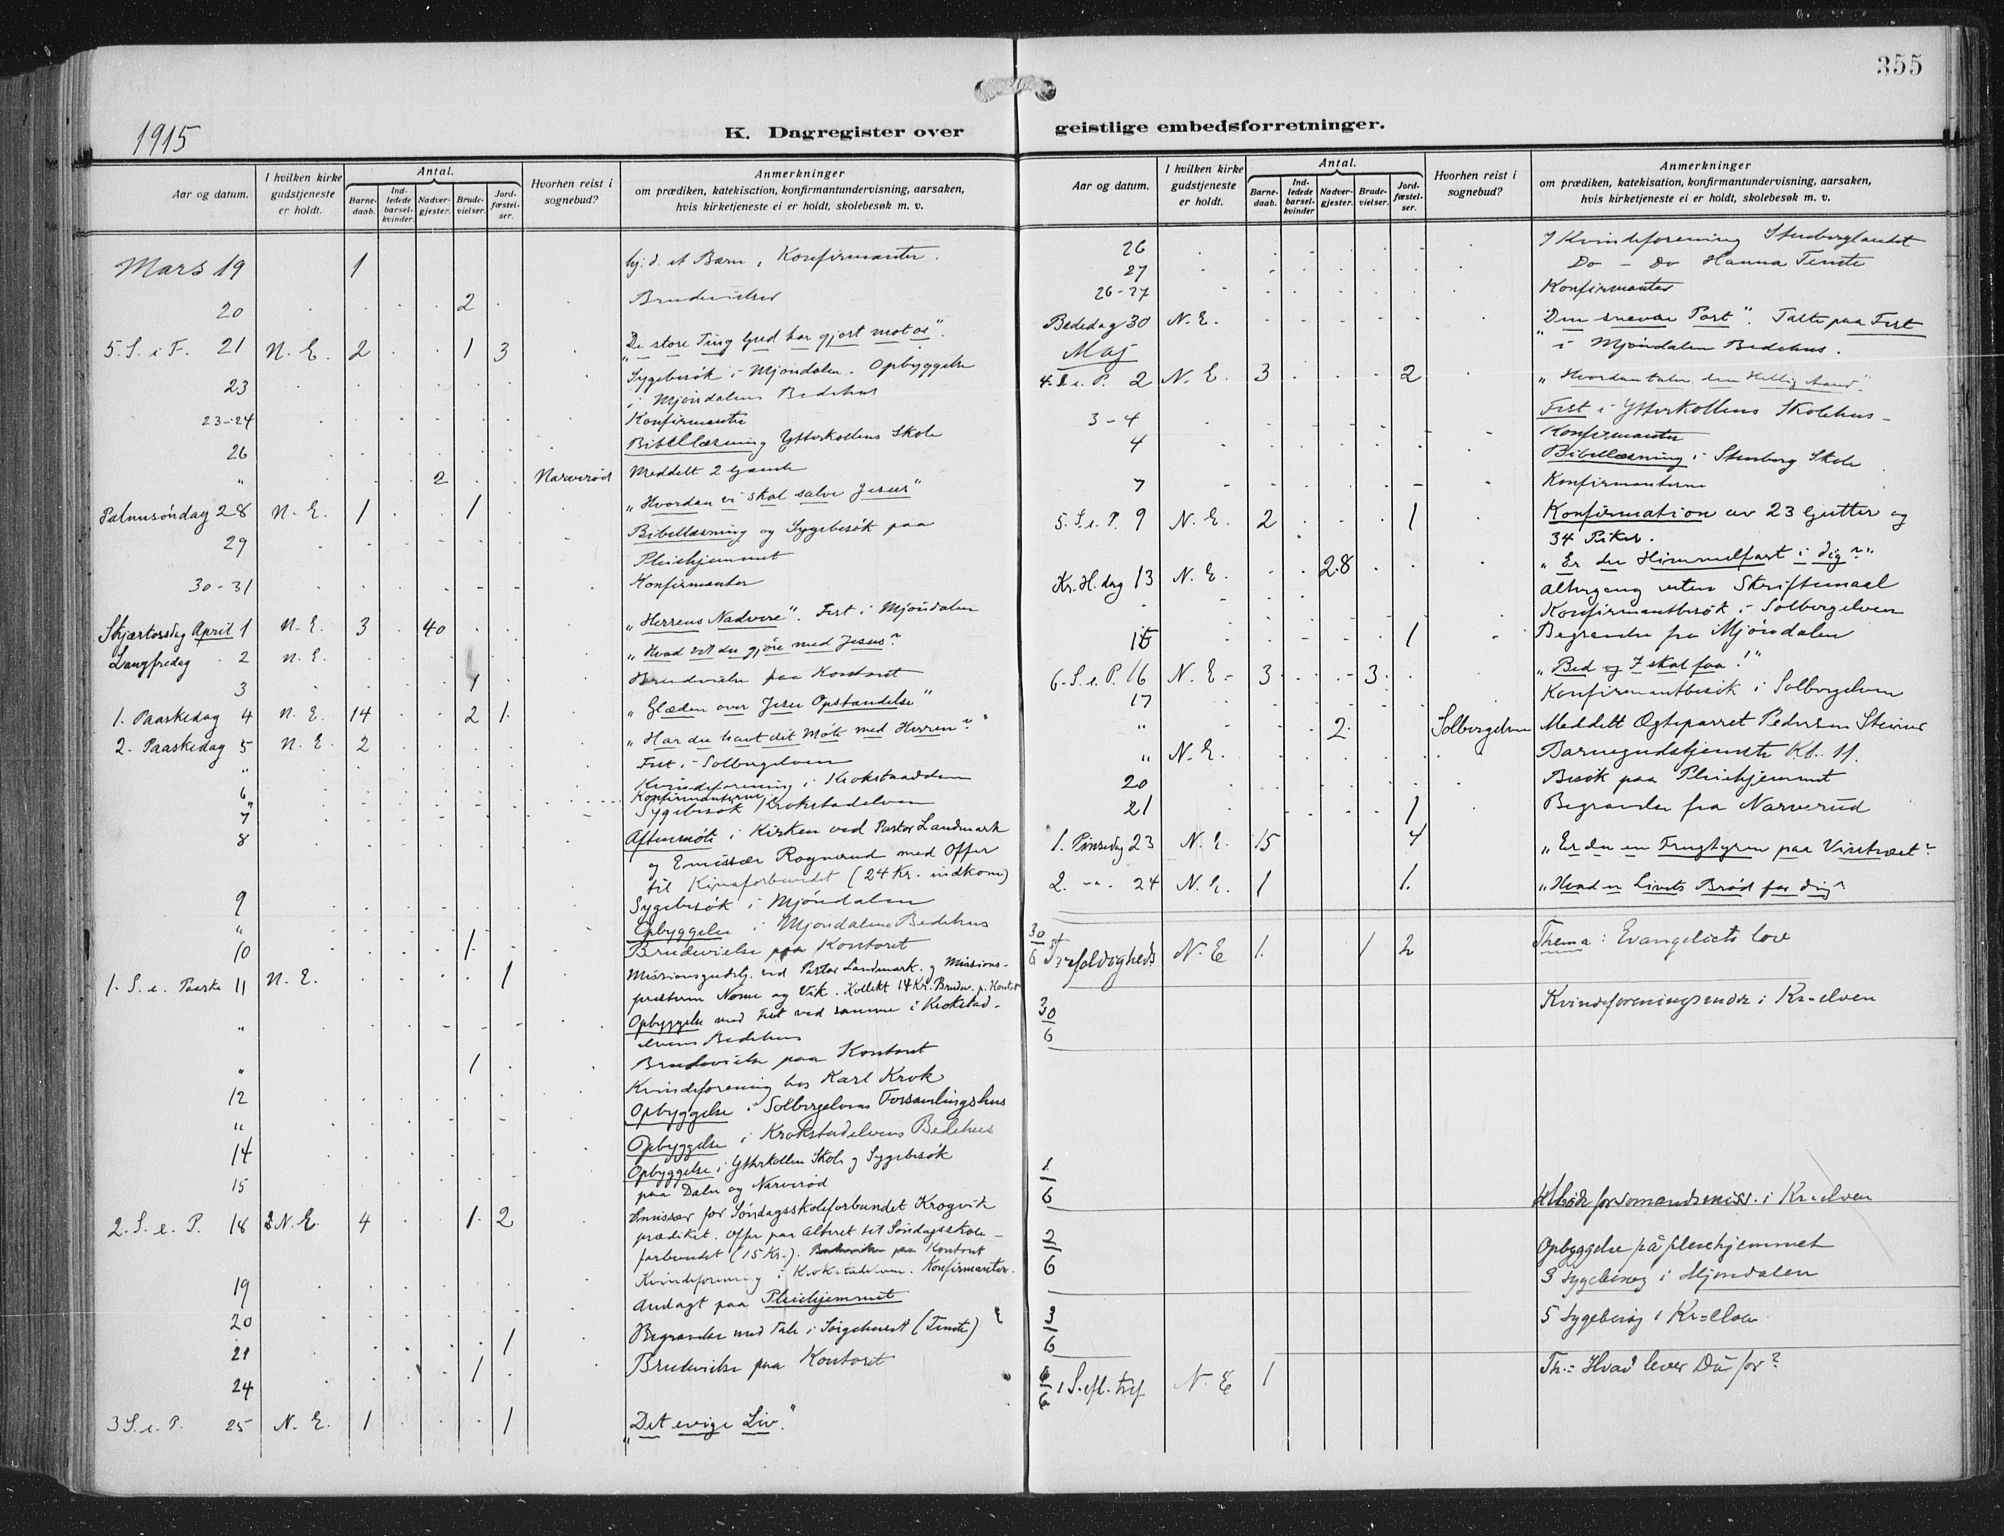 355
1915
K. Dagregister over geistlige embedsforretninger.
Aar og datum.
I hvilken kirke gudstjeneste er holdt.
Antal.
Barnedaab.
Indledede barselkvinder
Nadvergjester.
Brudevielser.
Jordfæstelser.
Hvorhen reist i sognebud?
Anmerkninger
om prædiken, katekisation, konfirmantundervisning, aarsaken,
hvis kirketjeneste ei er holdt, skolebesøk m. v.
Mars 19 1 hj. d. et Barn, Konfirmanter.
20 2 Brudevielser
5. S. i F. 21 N. E. 2 1 3 "De store Ting Gud har gjort mot os".
23 Sygebesøk i Mjøndalen. Opbyggelse
i Mjøndalens Bedehus
23-24 Konfirmanter
26 Bibellæsning Ytterkollens Skole
" 2 Narverød Meddelt 2 Gamle
Palmesøndag 28 N. E. 1 1 "Hvordan vi skal salve Jesus"
29 Bibellæsning og Sygebesøk paa
Pleiehjemmet
30-31 Konfirmanter
Skjærtorsdag April 1 N. E. 3 40 "Herrens Nadvere". Fest i Mjøndalen
Langfredag 2 N. E. "Hvad vil du gjøre med Jesus?
3 1 Brudevielse paa Kontoret
1. Paaskedag 4 N. E. 14 2 1. "Glæden over Jesu Opstandelse"
2. Paaskedag 5 N. E. 2 "Har du havt dit Møte med Herren?"
" Fest i Solbergelven
6 Kvindeforening i Krokstadelven
Konfirmanterne
7 Sygebesøk Krokstadelven
8 Aftenmøte i Kirken ved Pastor Landmark
og Emissær Rognerud med Offer
til Kinaforbundet (24 Kr. indkom)
9 Sygebesøk i Mjøndalen
" Opbyggelse i Mjøndalens Bedehus
10 1 Brudevielse paa Kontoret
1. S. e. Paaske 11 N. E. 1 Missionsgudstj. ved Pastor Landmark og Missions-
præsterne Nome og Vik. Kollekt 14 Kr. Brudev. p. Kontor
" Opbyggelse med Fest ved samme i Krokstad-
elvens Bedehus
" 1 Brudevielse paa Kontoret
12 Kvindeforening hos Karl Krok
" Opbyggelse i Solbergelvens Forsamlingshus
14 Opbyggelse i Krokstadelvens Bedehus
15 Opbyggelse i Ytterkollen Skole og Sygebesøk
paa Daler og Narverød
2. S. e. P. 18 N. E. 4 1. 2 Emissær for Søndagsskoleforbundet Krogvik
prædiket. Offer paa Alteret til Søndagsskole-
forbundet (15 Kr.). Brudevielse paa Kontoret
19 Kvindeforening i Krokstadelven. Konfirmanter.
20 Andagt paa Pleiehjemmet
21 1 Begravelse med Tale i Sørgehuset (Tenste)
24 1 Brudevielse paa Kontoret
3 S. e. P. 25 N. E. 1 1 "Det evige Liv."
Aar og datum.
I hvilken kirke gudstjeneste er holdt.
Antal.
Barnedaab.
Indledede barselkvinder
Nadvergjester.
Brudevielser.
Jordfæstelser.
Hvorhen reist i sognebud?
Anmerkninger
om prædiken, katekisation, konfirmantundervisning, aarsaken,
hvis kirketjeneste ei er holdt, skolebesøk m. v.
26 I Kvindeforening Stenberglandet
27 Do - Do Hanna Tenste
26-27 Konfirmanter
Bededag 30 N. E. "Den snevre Port". Talte paa Fest
i Mjøndalen Bedehus.
Maj
4. S. e. P. 2 N. E. 3 2 "Hvordan taler den Hellig Aand".
3-4 Fest i Ytterkollens Skolehus
Konfirmanter
4 Bibellæsning i Stenberg Skole
7 Konfirmanterne
5. S. e. P. 9 N. E. 2 1 Konfirmation av 23 Gutter og
34 Piker.
Kr. H. dag 13 N. E. 28 "Er du Himmelfart i dig?"
Altergang uten Skriftemaal
Konfirmantbesøk i Solbergelven
15 1 Begravelse fra Mjøndalen
6. S. e. P. 16 N. E. 3 3 "Bed og I skal faa!"
17 Konfirmantbesøk i Solbergelven
" 2 Solbergelven Meddelt Egteparret Pedersen Steiner
" N. E. Barnegudstjeneste Kl. 11.
20 Besøk paa Pleiehjemmet
21 1 Begravelse fra Narverud
1. Pinsedag 23 N. E. 15 4 "Er du en Frugtgren paa Vintræet?
2. -"- 24 N. E. 1 1. "Hvad er Livets Brød for dig?
30/6 Trefoldigheds N. E 1. 1 2 Thema: Evangeliets lov
30/6 Kvindeforeningsmøde i Kr-elven
1/6 Møde for somandsmiss. i Kr-elven
2/6 Opbyggelse på pleiehjemmet
3 sygebesøg i Mjøndalen
3/6 5 Sygebesøg i Kr-elven
6/6 1 S. eft. tref N. E 1 Th.: Hvad lever Du for?